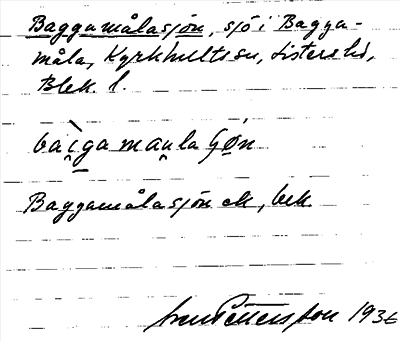 Baggamålasjön, sjö i Bagga-
måla, Kyrkhults sn, Listers hd,
Blek. l.
bai̯ga mau̯la ʃøn
Baggamålasjön ek, bek
Pettersson 1936